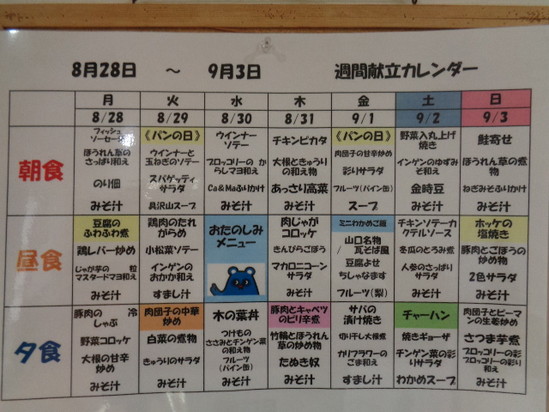 8月28日 ～ 9月3日 週間献立カレンダー
月 火 水 木 金 土 日
8/28 8/29 8/30 8/31 9/1 9/2 9/3
朝食
フィッシュ
ソーセージ
ほうれん草の
さっぱり和え
のり佃
みそ汁
《パンの日》
ウインナーと
玉ねぎのソテー
スパゲッティ
サラダ
具沢山スープ
ウインナー
ソテー
ブロッコリーの から
しマヨ和え
Ca&Maふりかけ
みそ汁
チキンピカタ
大根ときゅうり
の和え物
あっさり高菜
みそ汁
《パンの日》
肉団子の甘辛炒め
彩りサラダ
フルーツ(パイン缶)
スープ
野菜入丸上げ
焼き
インゲンのゆずみ
そ和え
金時豆
みそ汁
鮭寄せ
ほうれん草の煮
物
ねぎみそふりかけ
みそ汁
昼食
豆腐の
ふわふわ煮
鶏レバー炒め
じゃが芋の 粒
マスタードマヨ和え
みそ汁
鶏肉のたれ
がらめ
小松菜ソテー
インゲンの
おかか和え
すまし汁
おたのしみ
メニュー
肉じゃが
コロッケ
きんぴらごぼう
マカロニコーン
サラダ
みそ汁
ミニわかめご飯
山口名物
瓦そば風
豆腐よせ
ちしゃなます
フルーツ(梨)
チキンソテーカ
クテルソース
冬瓜のとろみ煮
人参のさっぱり
サラダ
みそ汁
ホッケの
塩焼き
豚肉とごぼうの
炒め物
2色サラダ
みそ汁
夕食
豚肉の 冷
しゃぶ
野菜コロッケ
大根の甘辛
炒め
みそ汁
肉団子の中華
炒め
白菜の煮物
きゅうりのサラダ
みそ汁
木の葉丼
つけもの
ささみとチンゲン菜
の和え物
フルーツ
(パイン缶)
みそ汁
豚肉とキャベツ
のピリ辛煮
竹輪とほうれん
草の炒め物
たぬき奴
みそ汁
サバの
漬け焼き
切り干し大根煮
カリフラワーの
ごま和え
すまし汁
チャーハン
焼きギョーザ
チンゲン菜の彩
りサラダ
わかめスープ
肉団子とピーマ
ンの生姜炒め
さつま芋煮
ブロッコリーの彩
り和え
みそ汁